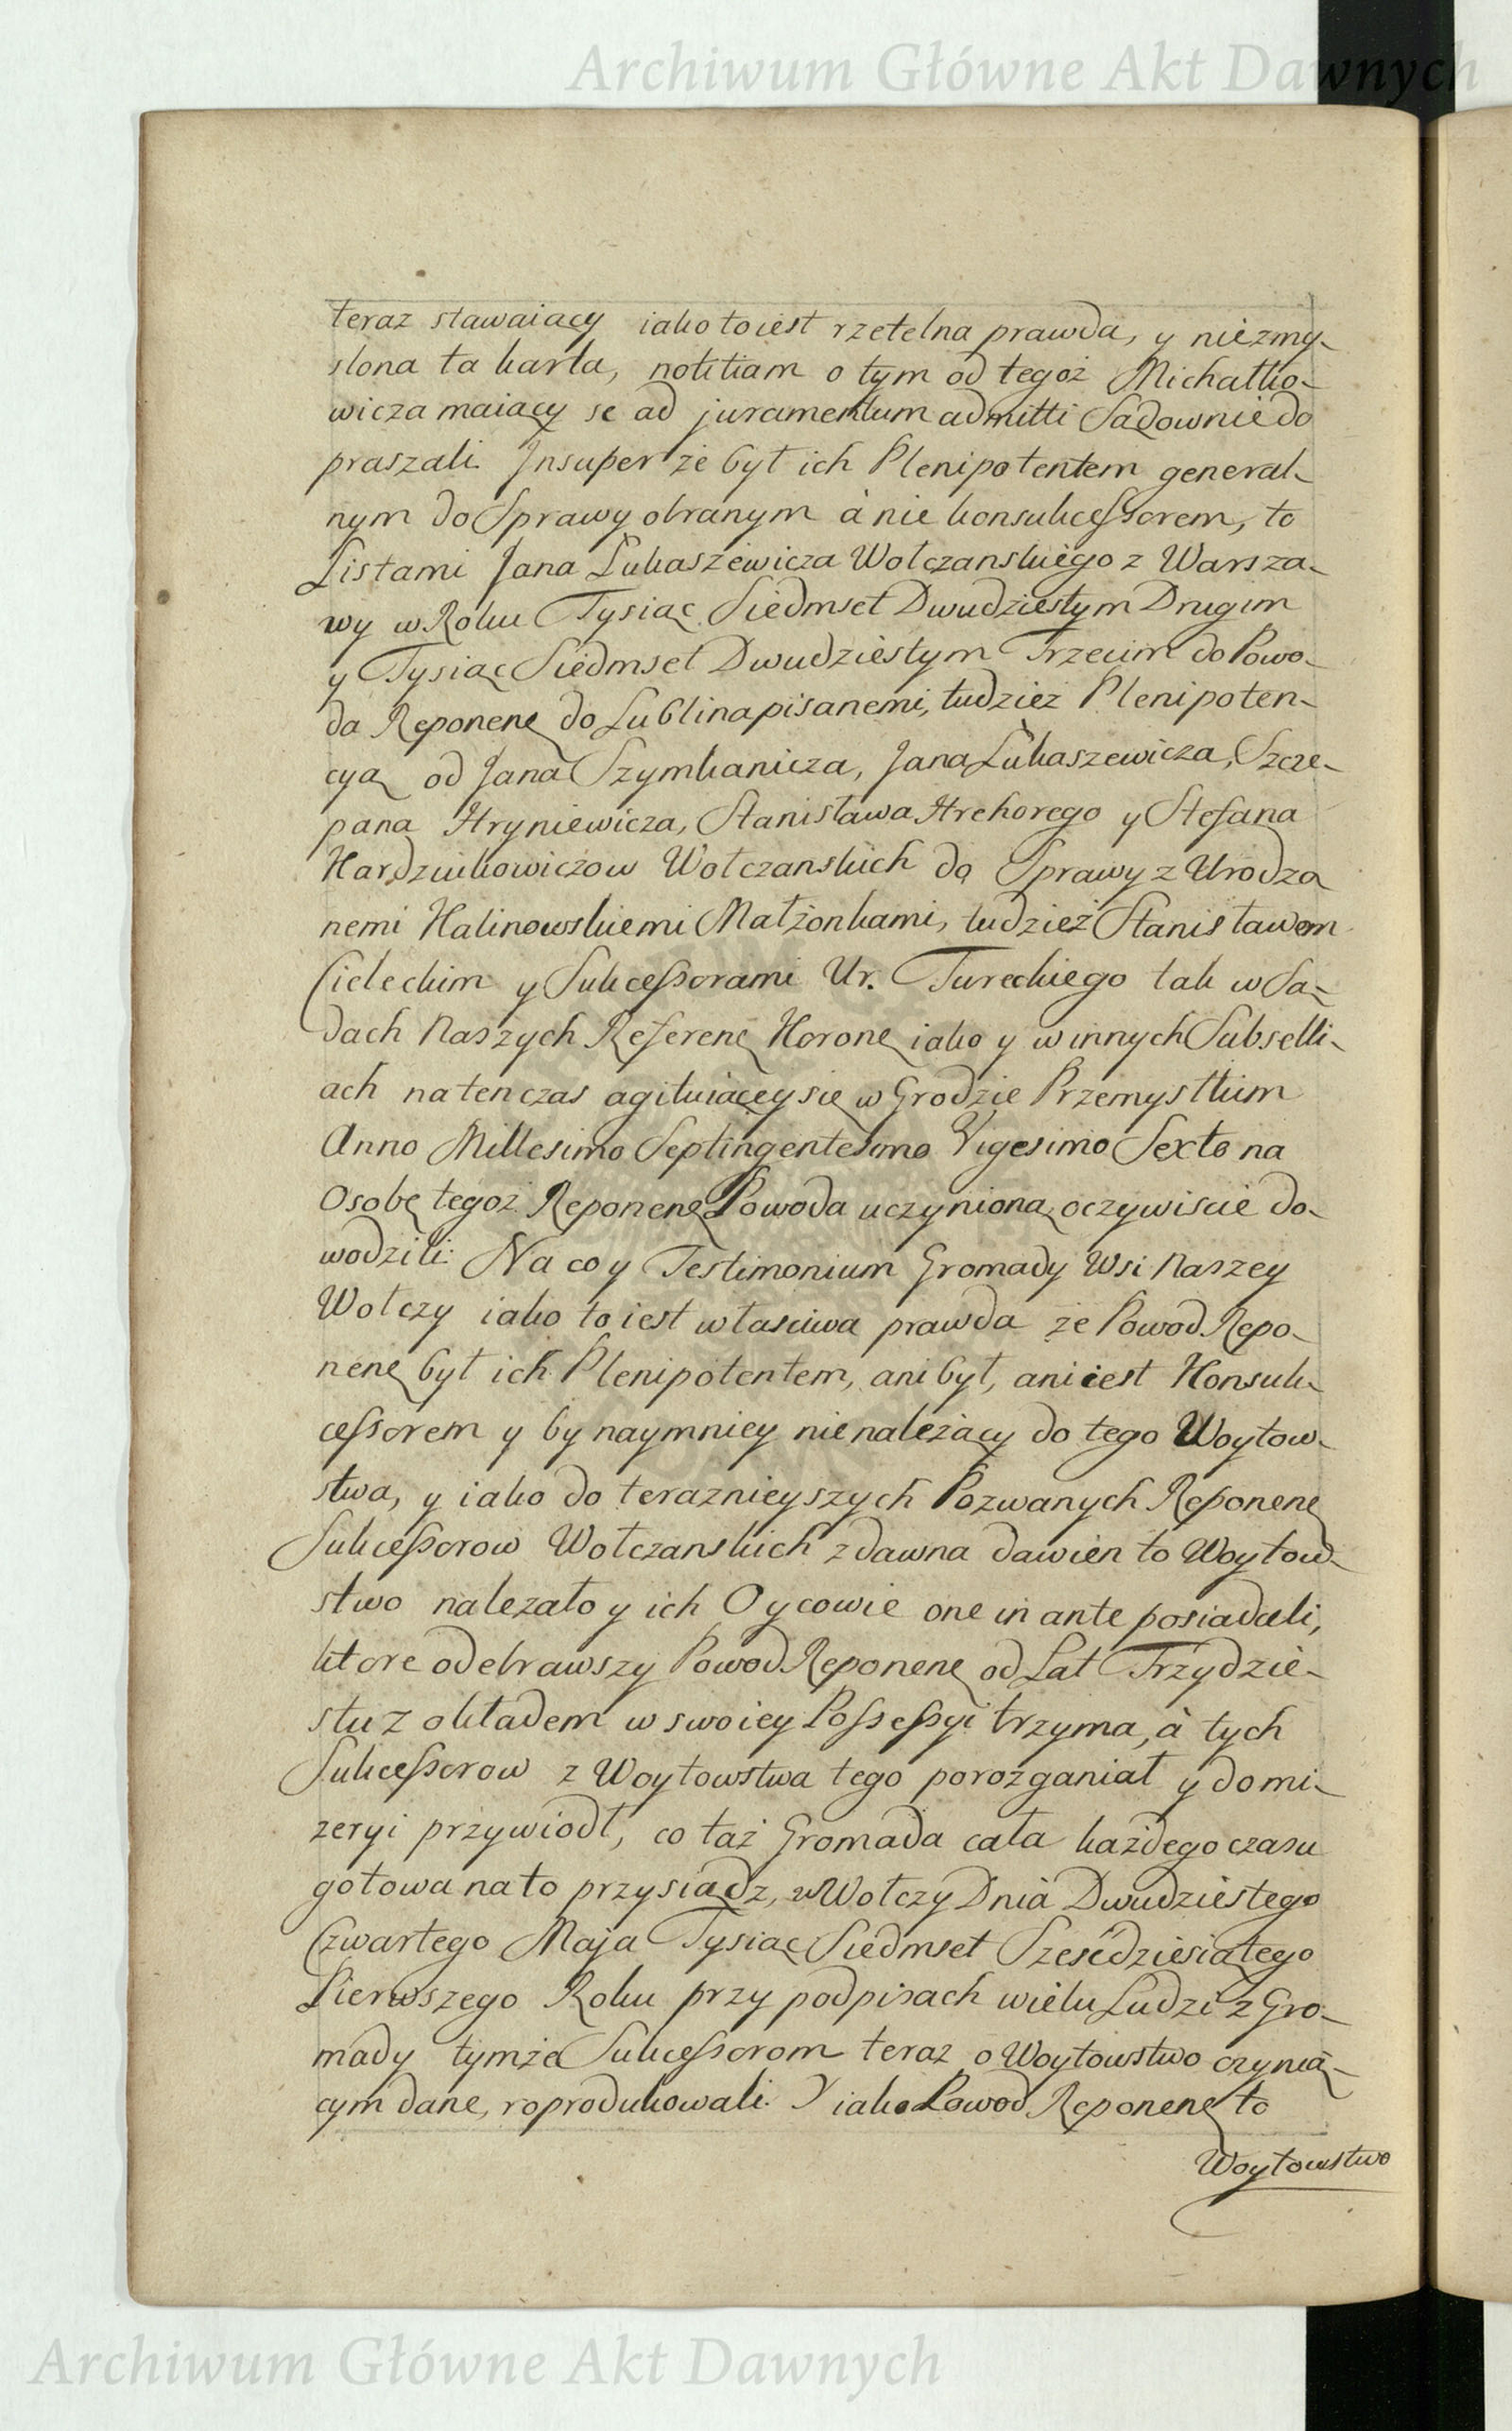 Archiwum Główne Akt Dawnych
teraz stawaiący iako to iest rzetelna prawda, y niezmy-
slona ta karta, notitiam o tym od tegoż Michałko-
wicza maiący se ad juramentum admitti Sądownie do
praszali. Insuper że był ich Plenipotentem general-
nym do Sprawy obranym à nie konsukcessorem, to
Listami Jana Łukaszewicza Wołczanskiego z Warsza-
wy w Roku Tysiąc Siedmset Dwudziestym Drugim
y Tysiąc Siedmset Dwudziestym Trzecim do Powo-
da Reponenę do Lublina pisanemi, tudzież Plenipoten-
cyą od Jana Szymkanicza, Jana Łukaszewicza, Szcze-
pana Hryniewicza, Stanisława Hrehorego y Stefana
Kardzuikowiczow Wołczanskich do Sprawy z Urodzo
nemi Kalinowskiemi Małżonkami, tudzież Stanisławem
Cieleckim y Sukcessorami Ur. Tureckiego tak w Są-
dach Naszych Referenę Koronę iako y w innych Subselli-
ach natenczas agituiącey się w Grodzie Przemyslkim
Anno Millesimo Septingentesimo Vigesimo Sexto na
Osobę tegoż Reponenę Powoda uczynioną oczywiscie do-
wodzili: Na co y Testimonium Gromady Wsi Naszey
Wołczy iako to iest własciwa prawda że Powod Repo-
nenę był ich Plenipotentem, ani był, ani iest Konsuk-
cessorem y by naymniey nienależący do tego Woytow-
stwa, y iako do teraznieyszych Pozwanych Reponenę
Sukcessorow Wołczanskich z dawna dawien to Woytow-
stwo nalezało y ich Oycowie one in ante posiadali,
ktore odebrawszy Powod Reponenę od Lat Trzydzie-
stu z okładem w swoiey Possessyi trzyma, à tych
Sukcessorow z Woytowstwa tego porozganiał y do mi-
zeryi przywiodł, co taż Gromada cała każdego czasu
gotowa na to przysiądz, w Wołczy Dnia Dwudziestego
Czwartego Maja Tysiąc Siedmset Sześćdziesiątego
Pierwszego Roku przy podpisach wielu Ludzi z Gro-
mady tymże Sukcessorom teraz o Woytowstwo czynią-
cym dane, roprodukowali. Y iako Powod Reponenę to
Woytowstwo
Archiwum Główne Akt Dawnych